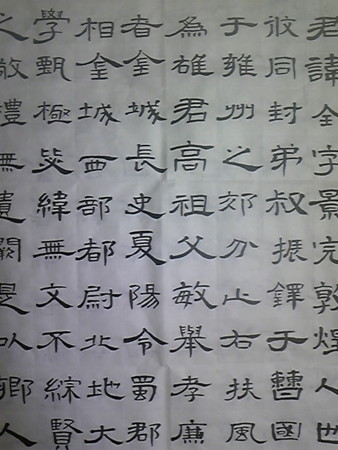 君諱全字景完敦煌人也
攸同封弟叔振鐸于曹國
于雍州之郊分止右扶風
為雄君高祖父敏舉孝廉
者金城長史夏陽令蜀郡
相金城西部都尉北地大
學甄極毖緯無文不綜賢
之敬禮無遺闕是以鄉人